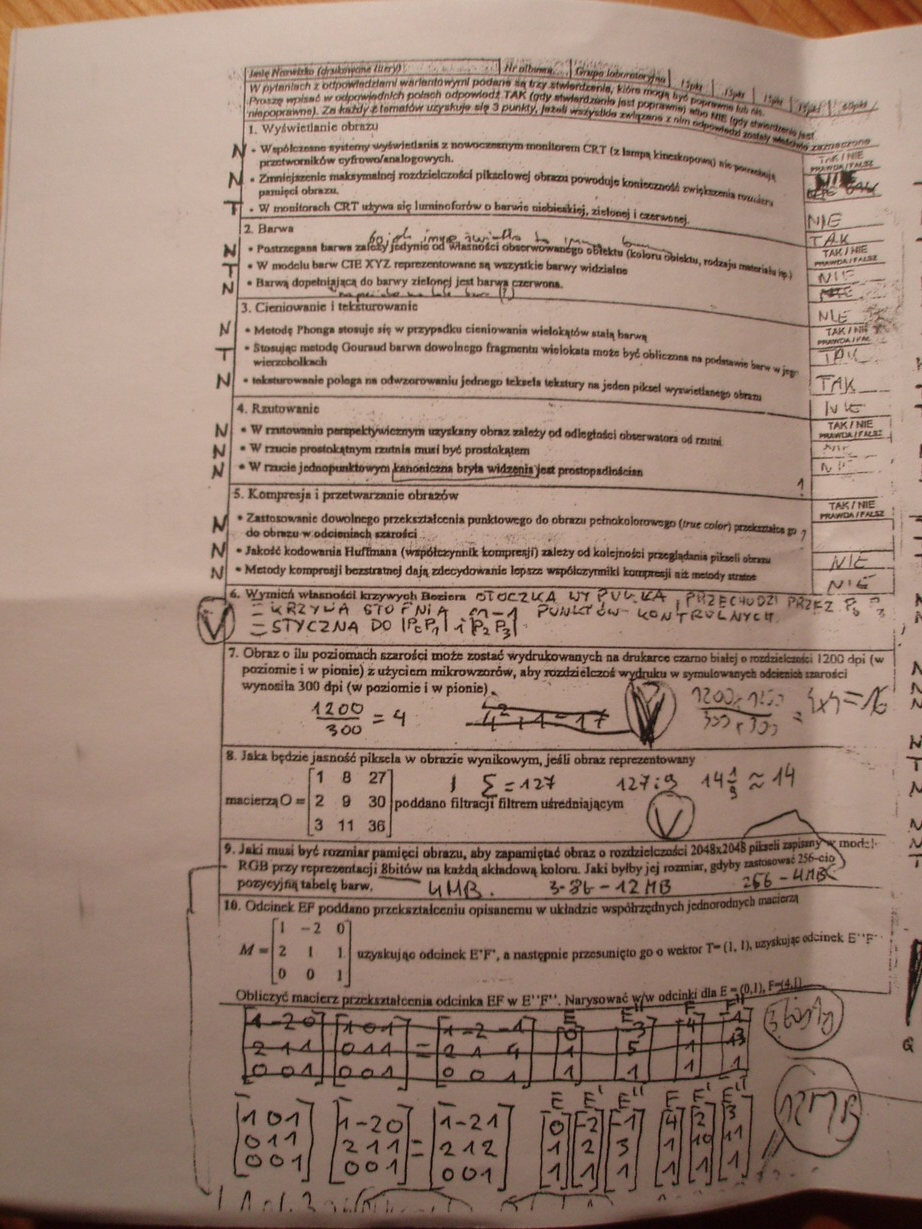 Imię Nazwisko (drukowane litery) Nr albumu Grupa laboratoryjna 15pkt 15pkt 15pkt 15pkt 60pkt
W pytaniach z odpowiedziami wariantowymi podane są trzy stwierdzenia, które mogą być poprawne lub nie.
Proszę wpisać w odpowiednich polach odpowiedź TAK (gdy stwierdzenie jest poprawne) albo NIE (gdy stwierdzenie jest
niepoprawne). Za każdy z tematów uzyskuje się 3 punkty, jeżeli wszystkie związane z nim odpowiedzi zostały właściwie zaznaczone
1. Wyświetlanie obrazu
TAK / NIE
PRAWDA / FALSZ
N • Współczesne systemy wyświetlania z nowoczesnym monitorem CRT (z lampą kineskopową) nie potrzebują
przetworników cyfrowo/analogowych.
N • Zmniejszenie maksymalnej rozdzielczości pikselowej obrazu powoduje konieczność zwiększenia rozmiaru
pamięci obrazu. NIE
T • W monitorach CRT używa się luminoforów o barwie niebieskiej, zielonej i czerwonej. TAK
2. Barwa
TAK / NIE
PRAWDA / FALSZ
N • Postrzegana barwa zależy jedynie od własności obserwowanego obiektu (koloru obiektu, rodzaju materiału itp.) NIE
T • W modelu barw CIE XYZ reprezentowane są wszystkie barwy widzialne
N • Barwą dopełniającą do barwy zielonej jest barwa czerwona. NIE
3. Cieniowanie i teksturowanie
TAK / NIE
PRAWDA / FAŁ
N • Metodę Phonga stosuje się w przypadku cieniowania wielokątów stałą barwą
T • Stosując metodę Gouraud barwa dowolnego fragmentu wielokąta może być obliczona na podstawie barw w jego
wierzchołkach TAK
N • teksturowanie polega na odwzorowaniu jednego teksela tekstury na jeden piksel wyświetlanego obrazu NIE
4. Rzutowanie
TAK / NIE
PRAWDA / FALSZ
N • W rzutowaniu perspektywicznym uzyskany obraz zależy od odległości obserwatora od rzutni
N • W rzucie prostokątnym rzutnia musi być prostokątem
N • W rzucie jednopunktowym kanoniczna bryła widzenia jest prostopadłościan !
5. Kompresja i przetwarzanie obrazów
TAK / NIE
PRAWDA / FALSZ
N • Zastosowanie dowolnego przekształcenia punktowego do obrazu pełnokolorowego (true color) przekształca go ?
do obrazu w odcieniach szarości
N • Jakość kodowania Huffmana (współczynnik kompresji) zależy od kolejności przeglądania pikseli obrazu NIE
N • Metody kompresji bezstratnej dają zdecydowanie lepsze współczynniki kompresji niż metody stratne NIE
6. Wymień własności krzywych Beziera OTOCZKA WYPUKŁA, PRZECHODZI PRZEZ P0 P3
V – KRZYWA STOPNIA m-1 PUNKTÓW KONTROLNYCH
– STYCZNA DO |P0P1| i |P2P3|
7. Obraz o ilu poziomach szarości może zostać wydrukowanych na drukarce czarno białej o rozdzielczości 1200 dpi (w
poziomie i w pionie) z użyciem mikrowzorów, aby rozdzielczoś wydruku w symulowanych odcieniach szarości
wynosiła 300 dpi (w poziomie i w pionie).
1200/300 = 4 4²+1=17 V 1200x1200/300x300 = 4x4=16
8. Jaka będzie jasność piksela w obrazie wynikowym, jeśli obraz reprezentowany
1 8 27 Σ=127 127:9 14 1/9 ≈ 14
macierzą O = 2 9 30 poddano filtracji filtrem uśredniającym V
3 11 36
9. Jaki musi być rozmiar pamięci obrazu, aby zapamiętać obraz o rozdzielczości 2048x2048 pikseli zapisany w model
RGB przy reprezentacji 8bitów na każdą składową koloru. Jaki byłby jej rozmiar, gdyby zastosować 256-cio
pozycyjną tabelę barw. 4MB. 3·8b – 12MB 256 – 4MB
10. Odcinek EF poddano przekształceniu opisanemu w układzie współrzędnych jednorodnych macierzą
1 -2 0
M = 2 1 1 uzyskując odcinek E'F', a następnie przesunięto go o wektor T= (1, 1), uzyskując odcinek E''F''
0 0 1
Obliczyć macierz przekształcenia odcinka EF w E''F''. Narysować w/w odcinki dla E = (0,1), F=(4,1)
E E'' F F''
1 -2 0 1 0 1 1 -2 -1 0 -3 4 1
2 1 1 0 1 1 = 2 1 4 1 5 1 13
0 0 1 0 0 1 0 0 1 1 1 1 1
E E' E'' F F' F''
1 0 1 1 -2 0 1 -2 1 0 -2 -1 4 2 3
0 1 1 2 1 1 = 2 1 2 1 2 3 1 10 11
0 0 1 0 0 1 0 0 1 1 1 1 1 1 1
12MB